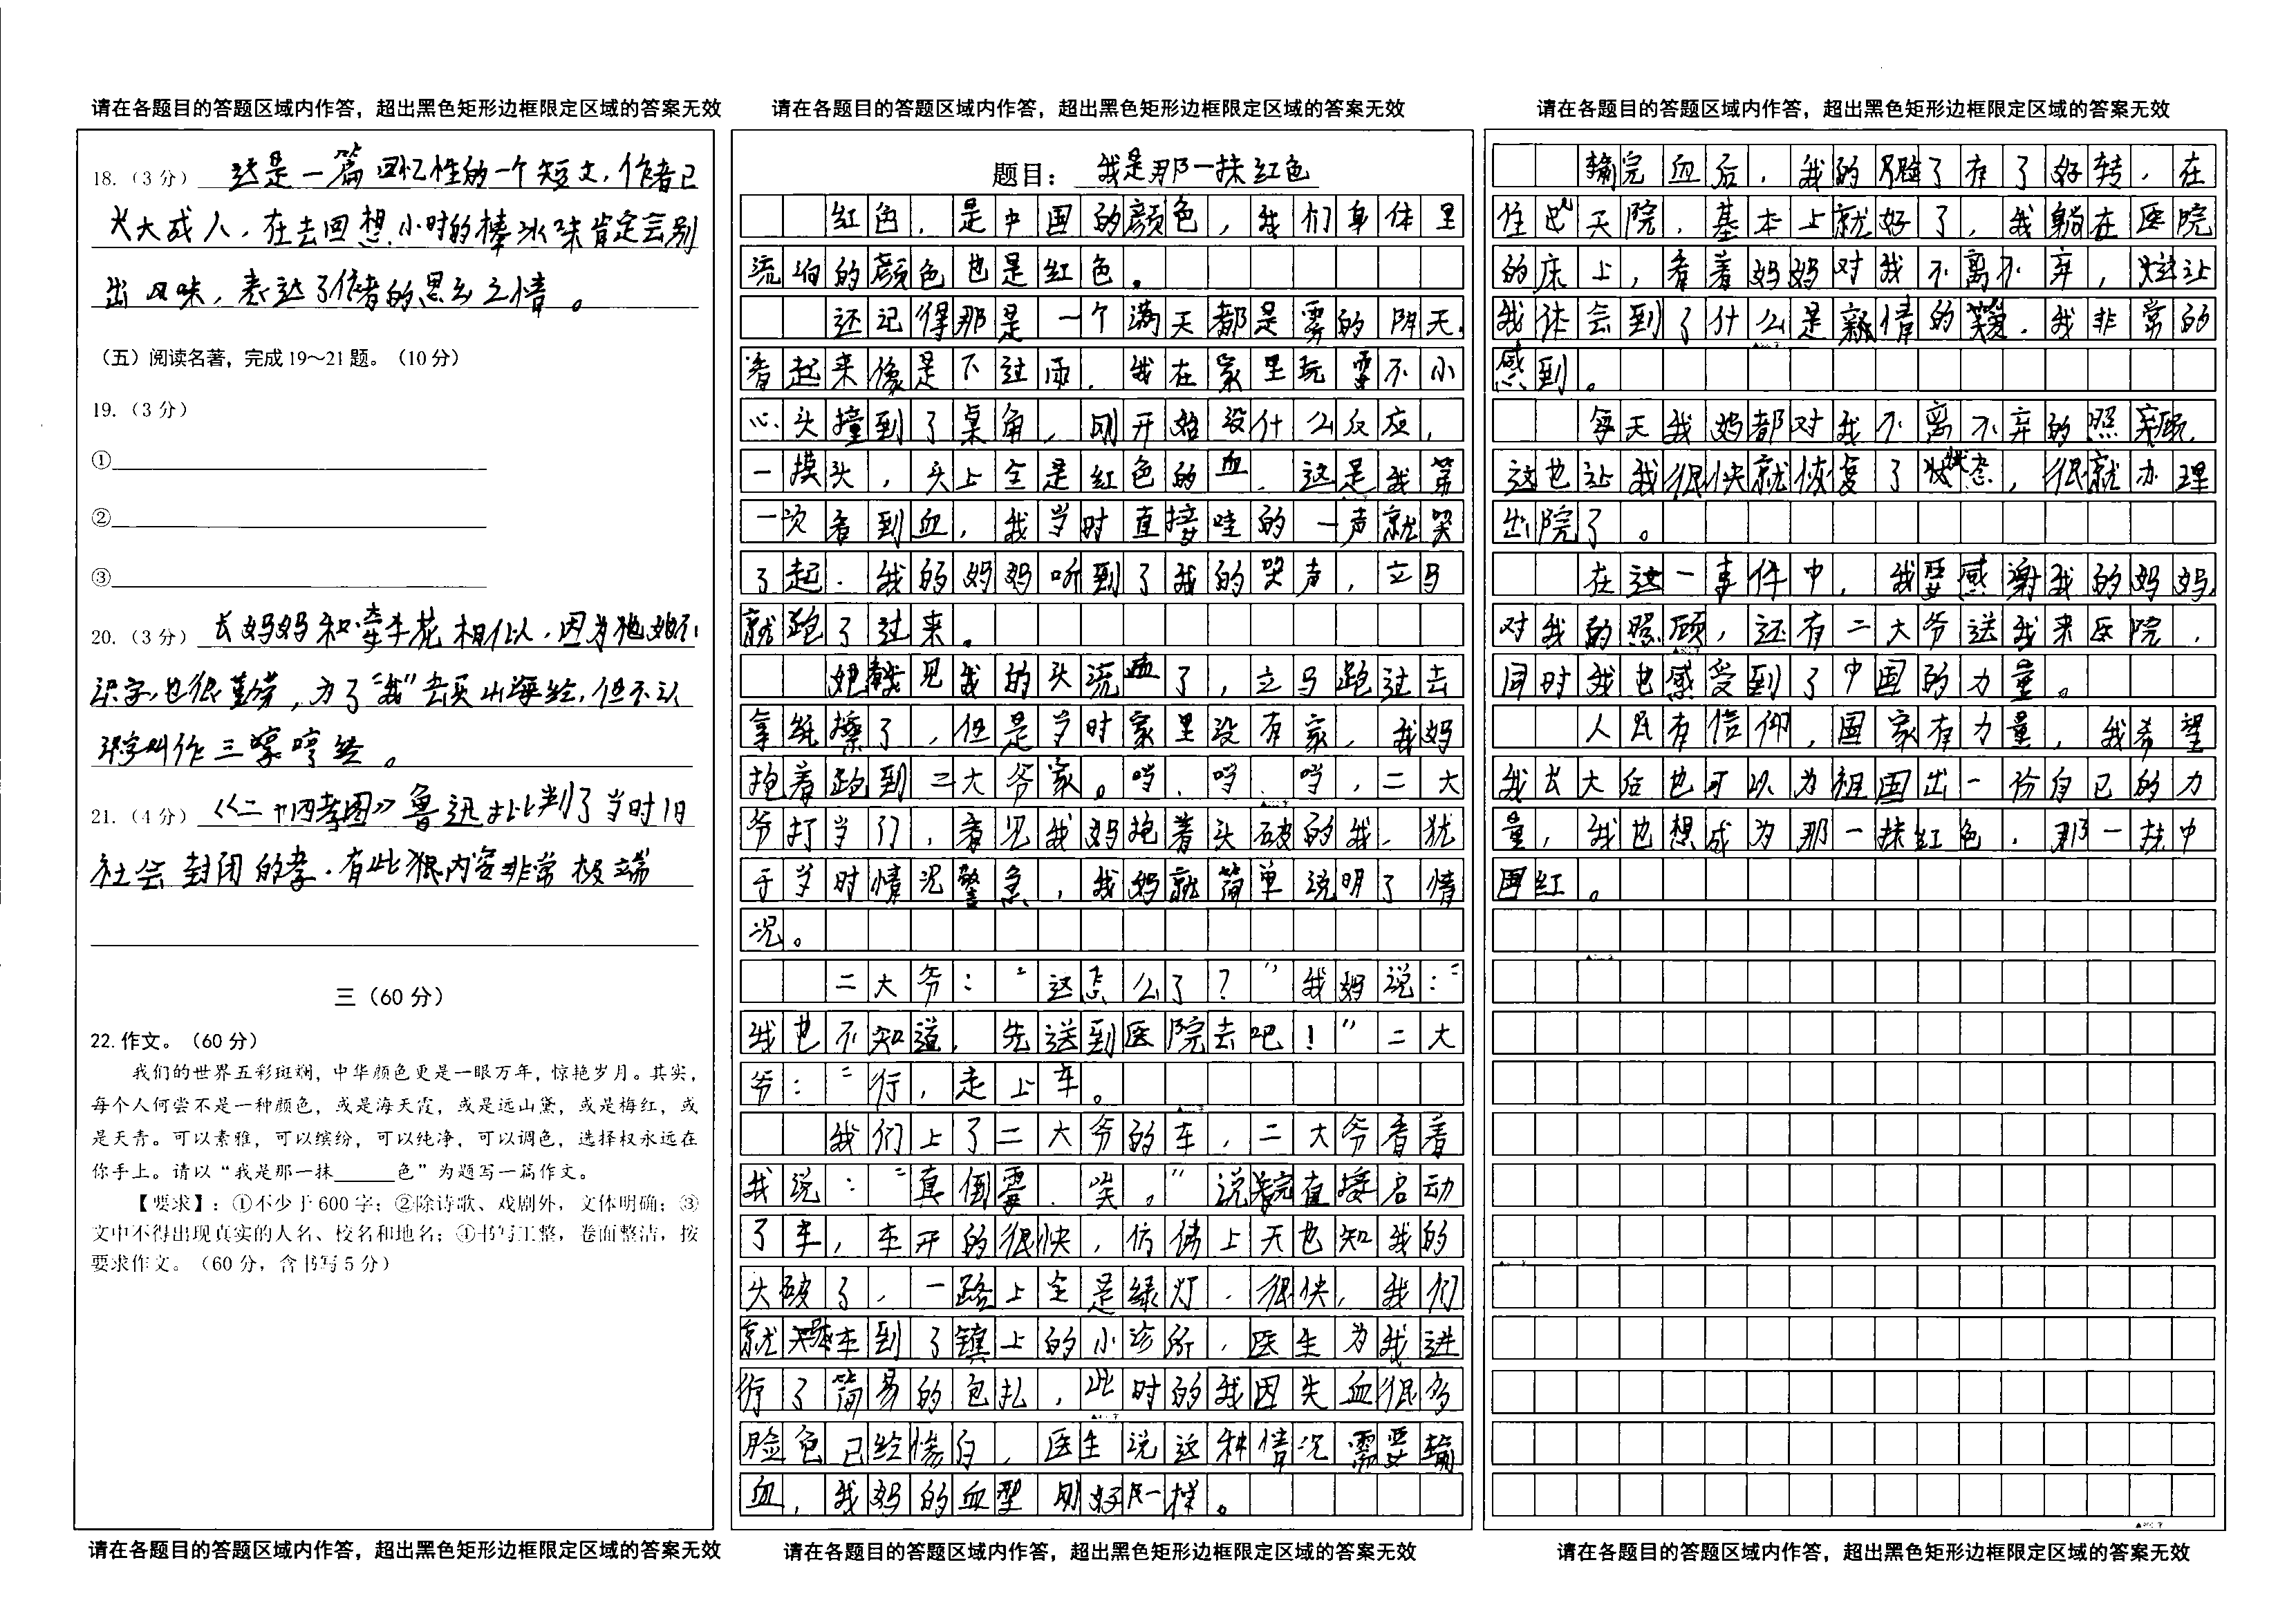 请在各题目的答题区域内作答，超出黑色矩形边框限定区域的答案无效
18.（3 分） 这是一篇回忆性的一个短文，作者已
长大成人，在去回想小时的棒冰味肯定会别
出风味，表达了作者的思乡之情。
（五）阅读名著，完成 19～21 题。（10 分）
19.（3 分）
①
②
③
20.（3 分） 长妈妈和牵牛花相似，因为她她不
识字，也很勤劳，为了“我”去买山海经，但不认
识字叫作三哼经。
21.（4 分） 《二十四孝图》鲁迅批判了当时旧
社会封闭的孝，有些狠内容非常极端
三（60 分）
22.作文。（60 分）
我们的世界五彩斑斓，中华颜色更是一眼万年，惊艳岁月。其实，
每个人何尝不是一种颜色，或是海天霞，或是远山黛，或是梅红，或
是天青。可以素雅，可以缤纷，可以纯净，可以调色，选择权永远在
你手上。请以“我是那一抹______色”为题写一篇作文。
【要求】：①不少于 600 字；②除诗歌、戏剧外，文体明确；③
文中不得出现真实的人名、校名和地名；④书写工整，卷面整洁，按
要求作文。（60 分，含书写 5 分）
请在各题目的答题区域内作答，超出黑色矩形边框限定区域的答案无效
请在各题目的答题区域内作答，超出黑色矩形边框限定区域的答案无效
题目： 我是那一抹红色
红色，是中国的颜色，我们身体里
流淌的颜色也是红色。
还记得那是一个满天都是雾的阴天，
看起来像是下过雨，我在家里玩耍不小
心头撞到了桌角，刚开始没什么反应，
一摸头，头上全是红色的血，这是我第
一次看到血，我当时直接哇的一声就哭
了起，我的妈妈听到了我的哭声，立马
就跑了过来。
她见我的头流血了，立马跑过去
拿纸擦了，但是当时家里没有家，我妈
抱着跑到二大爷家。当，当，当，二大
爷打当门，看见我妈抱着头破的我，犹
于当时情况警急，我妈就简单说明了情
况。
二大爷：“这怎么了？”我妈说：“
我也不知道，先送到医院去吧！”二大
爷：“行，走上车。
我们上了二大爷的车，二大爷看着
我说：“真倒霉，唉。”说完直接启动
了车，车开的很快，仿佛上天也知我的
头破了，一路上全是绿灯，很快，我们
就车到了镇上的小诊所，医生为我进
行了简易的包扎，此时的我因失血很多
脸色已经惨白，医生说这种情况需要输
血，我妈的血型刚好一样。
请在各题目的答题区域内作答，超出黑色矩形边框限定区域的答案无效
请在各题目的答题区域内作答，超出黑色矩形边框限定区域的答案无效
输完血后，我的了有了好转，在
住天院，基本上就好了，我躺在医院
的床上，看着妈妈对我不离不弃，让
我体会到了什么是亲情的爱，我非常的
感到。
每天我妈都对我不离不弃的照顾，
这也让我很快就恢复了状态，很就办理
出院了。
在这一事件中，我要感谢我的妈妈，
对我的照顾，还有二大爷送我来医院，
同时我也感受到了中国的力量。
人民有信仰，国家有力量，我希望
我长大后也可以为祖国出一份自己的力
量，我也想成为那一抹红色，那一抹中
国红。
请在各题目的答题区域内作答，超出黑色矩形边框限定区域的答案无效